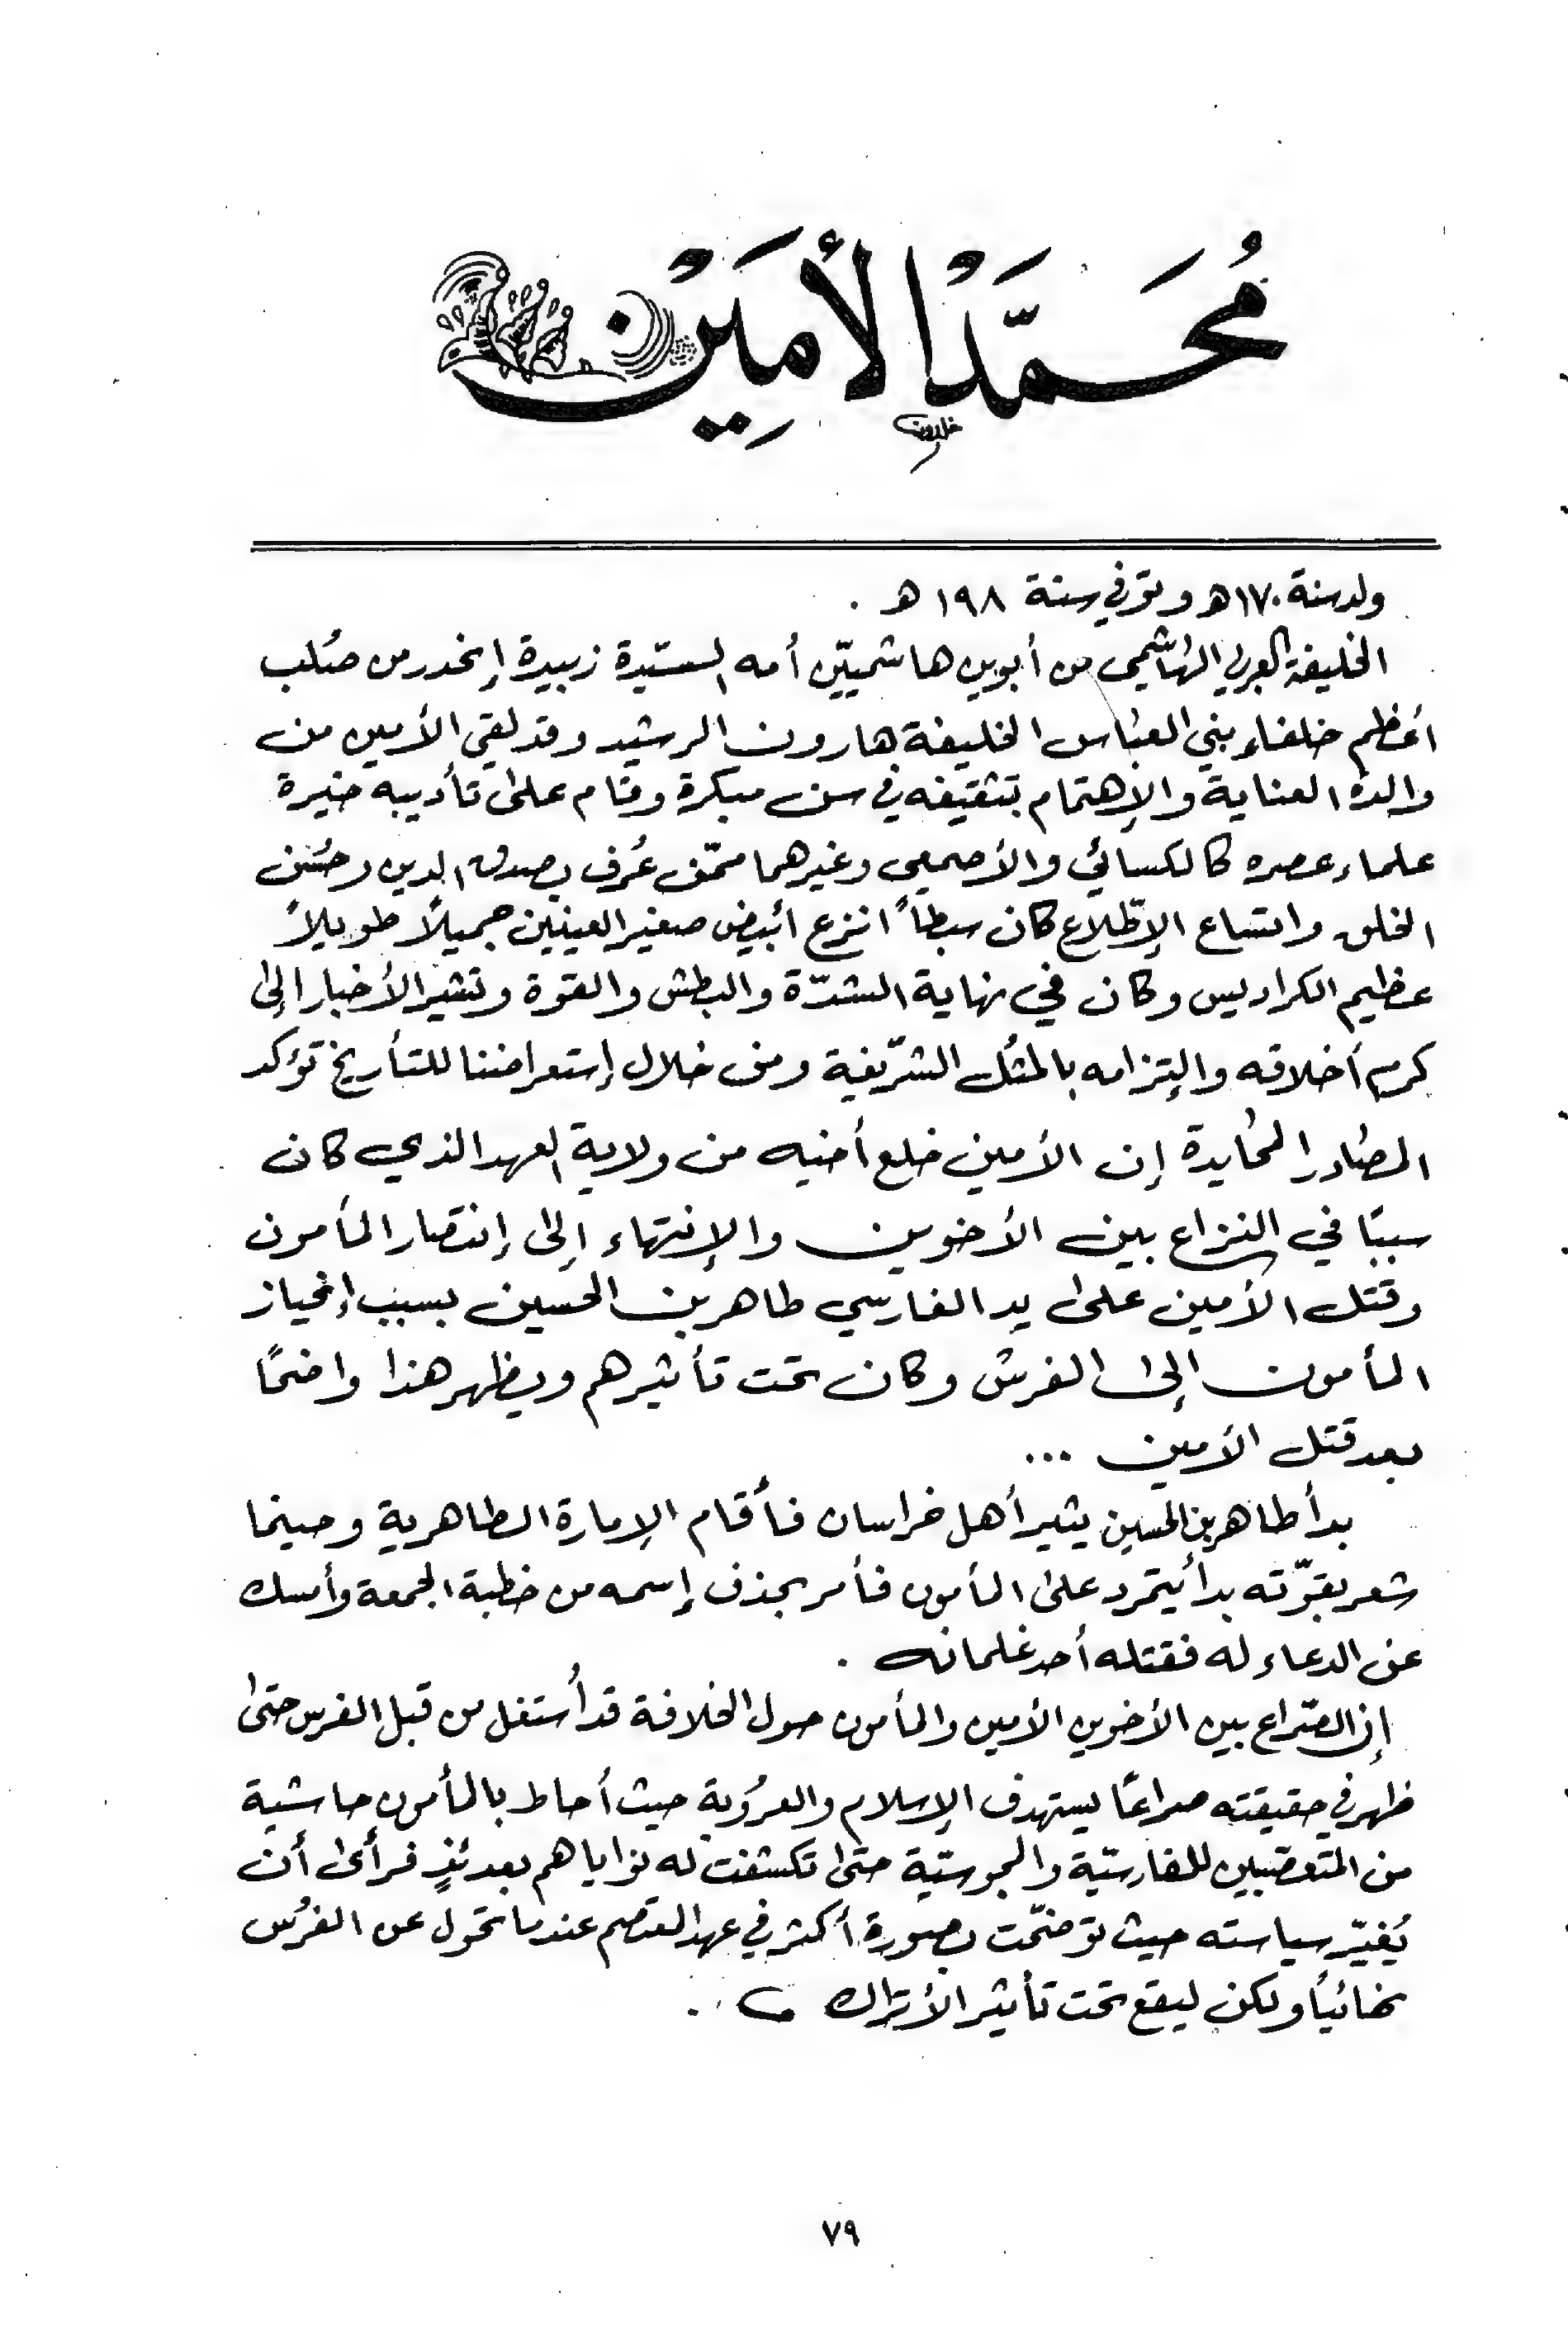 مُحَمَّدُ الأَمِيْنُ
خلدون
ولد سنة ١٧٠ هـ وتوفي سنة ١٩٨ هـ .
الخليفة العربي الهاشمي من أبوين هاشميّين أمه السيّدة زبيدة إنحدر من صُلب
أعظم خلفاء بني العباس الخليفة هارون الرشيد وقد لقي الأمين من
والده العناية والإهتمام بتثقيفه في سن مبكرة وقام على تأديبه خيرة
علماء عصره كالكسائي والأصمعي وغيرهما ممّن عُرف بصدق الدين وحُسن
الخلق واتساع الإطّلاع كان سبطاً انزع أبيض صغير العينين جميلاً طويلاً
عظيم الكراديس وكان في نهاية الشدّة والبطش والقوة وتشير الأخبار إلى
كرم أخلاقه والتزامه بالمثُل الشرّيفة ومن خلال إستعراضنا للتأريخ تؤكد
المصادر المحايدة إن الأمين خلع أخيه من ولاية العهد الذي كان
سببًا في النزاع بين الأخوين والإنتهاء إلى إنتصار المأمون
وقتل الأمين على يد الفارسي طاهر بن الحسين بسبب إنحياز
المأمون إلى الفرس وكان تحت تأثيرهم ويظهر هذا واضحًا
بعد قتل الأمين ...
بدأ طاهر بن الحسين يثير أهل خراسان فأقام الإمارة الطاهرية وحينما
شعر بقوّته بدأ يتمرد على المأمون فأمر بحذف إسمه من خطبة الجمعة وأمسك
عن الدعاء له فقتله أحد غلمانه .
إن الصّراع بين الأخوين الأمين والمأمون حول الخلافة قد أُستغل من قبل الفرس حتى
ظهر في حقيقته صراعًا يستهدف الإسلام والعروُبة حيث أحاط بالمأمون حاشية
من المتعصبين للفارسيّة والمجوسيّة حتى تكشفت له نواياهم بعدئذٍ فرأى أن
يُغيّر سياسته حيث توضحّت بصورة أكثر في عهد المعتصم عندما تحول عن الفرُس
نهائياً ولكن ليقع تحت تأثير الأتراك .
٧٩